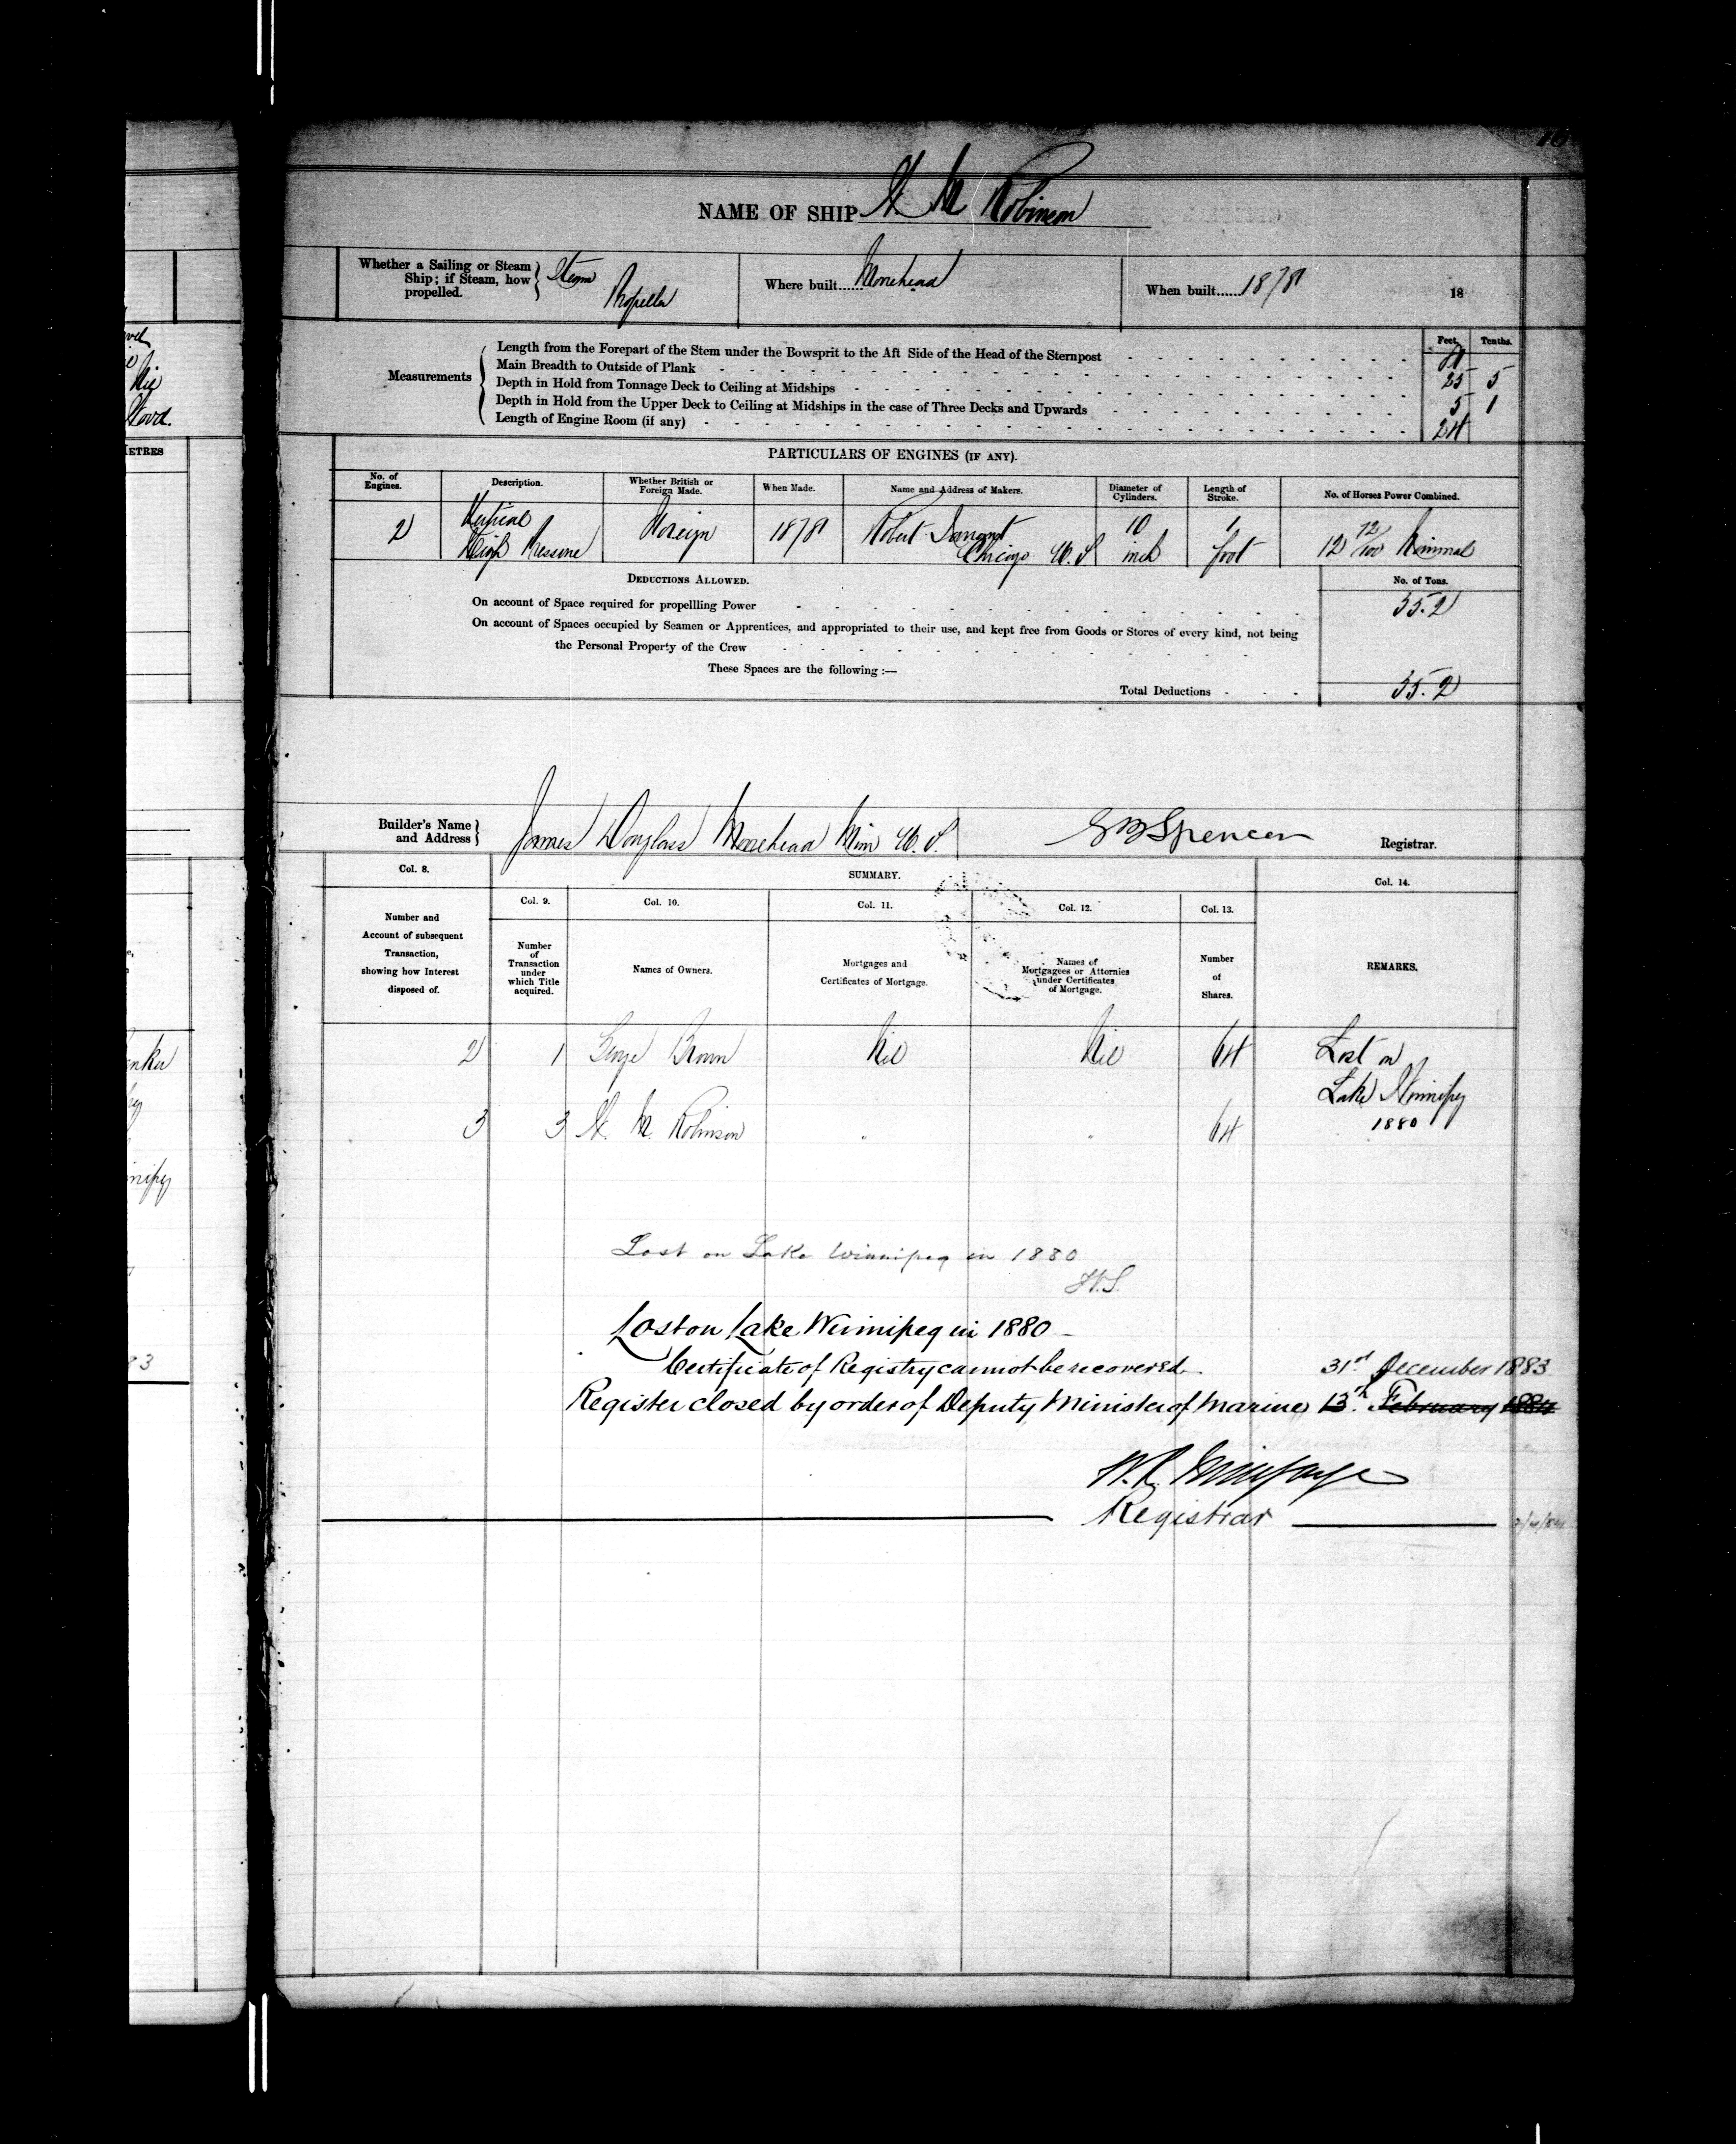 16
NAME OF SHIP W. M Robinson
Whether a Sailing or Steam Ship; if Steam, how propelled. } Steam Propeller
Where built...... Moorhead
When built...... 1878 18
Feet. Tenths.
Measurements
Length from the Forepart of the Stem under the Bowsprit to the Aft Side of the Head of the Sternpost
Main Breadth to Outside of Plank 25 5
Depth in Hold from Tonnage Deck to Ceiling at Midships 5 1
Depth in Hold from the Upper Deck to Ceiling at Midships in the case of Three Decks and Upwards
Length of Engine Room (if any) 24
PARTICULARS OF ENGINES (IF ANY).
No. of Engines. Description. Whether British or Foreign Made. When Made. Name and Address of Makers. Diameter of Cylinders. Length of Stroke. No. of Horses Power Combined.
2 Vertical High Pressure Foreign 1878 Robert Chicago U. S 10 inch 1 foot 12 72/100 Nominal
DEDUCTIONS ALLOWED. No. of Tons.
On account of Space required for propellling Power 35.2
On account of Spaces occupied by Seamen or Apprentices, and appropriated to their use, and kept free from Goods or Stores of every kind, not being
the Personal Property of the Crew
These Spaces are the following :—
Total Deductions 35.2
Builder's Name and Address } James Douglass Moorhead Min U. S. Spencer Registrar.
Col. 8. SUMMARY. Col. 14.
Col. 9. Col. 10. Col. 11. Col. 12. Col. 13.
Number and Account of subsequent Transaction, showing how Interest disposed of.
Number of Transaction under which Title acquired.
Names of Owners.
Mortgages and Certificates of Mortgage.
Names of Mortgagees or Attornies under Certificates of Mortgage.
Number of Shares.
REMARKS.
2 1 George Brown Nil Nil 64 Lost on
Lake Winnipeg
3 3 W. M. Robinson " " 64 1880
Lost on Lake Winnipeg in 1880
Lost on Lake Winnipeg in 1880
Certificate of Registry cannot be recovered. 31st December 1883
Register closed by order of Deputy Minister of Marine 13th February 1884
Registrar